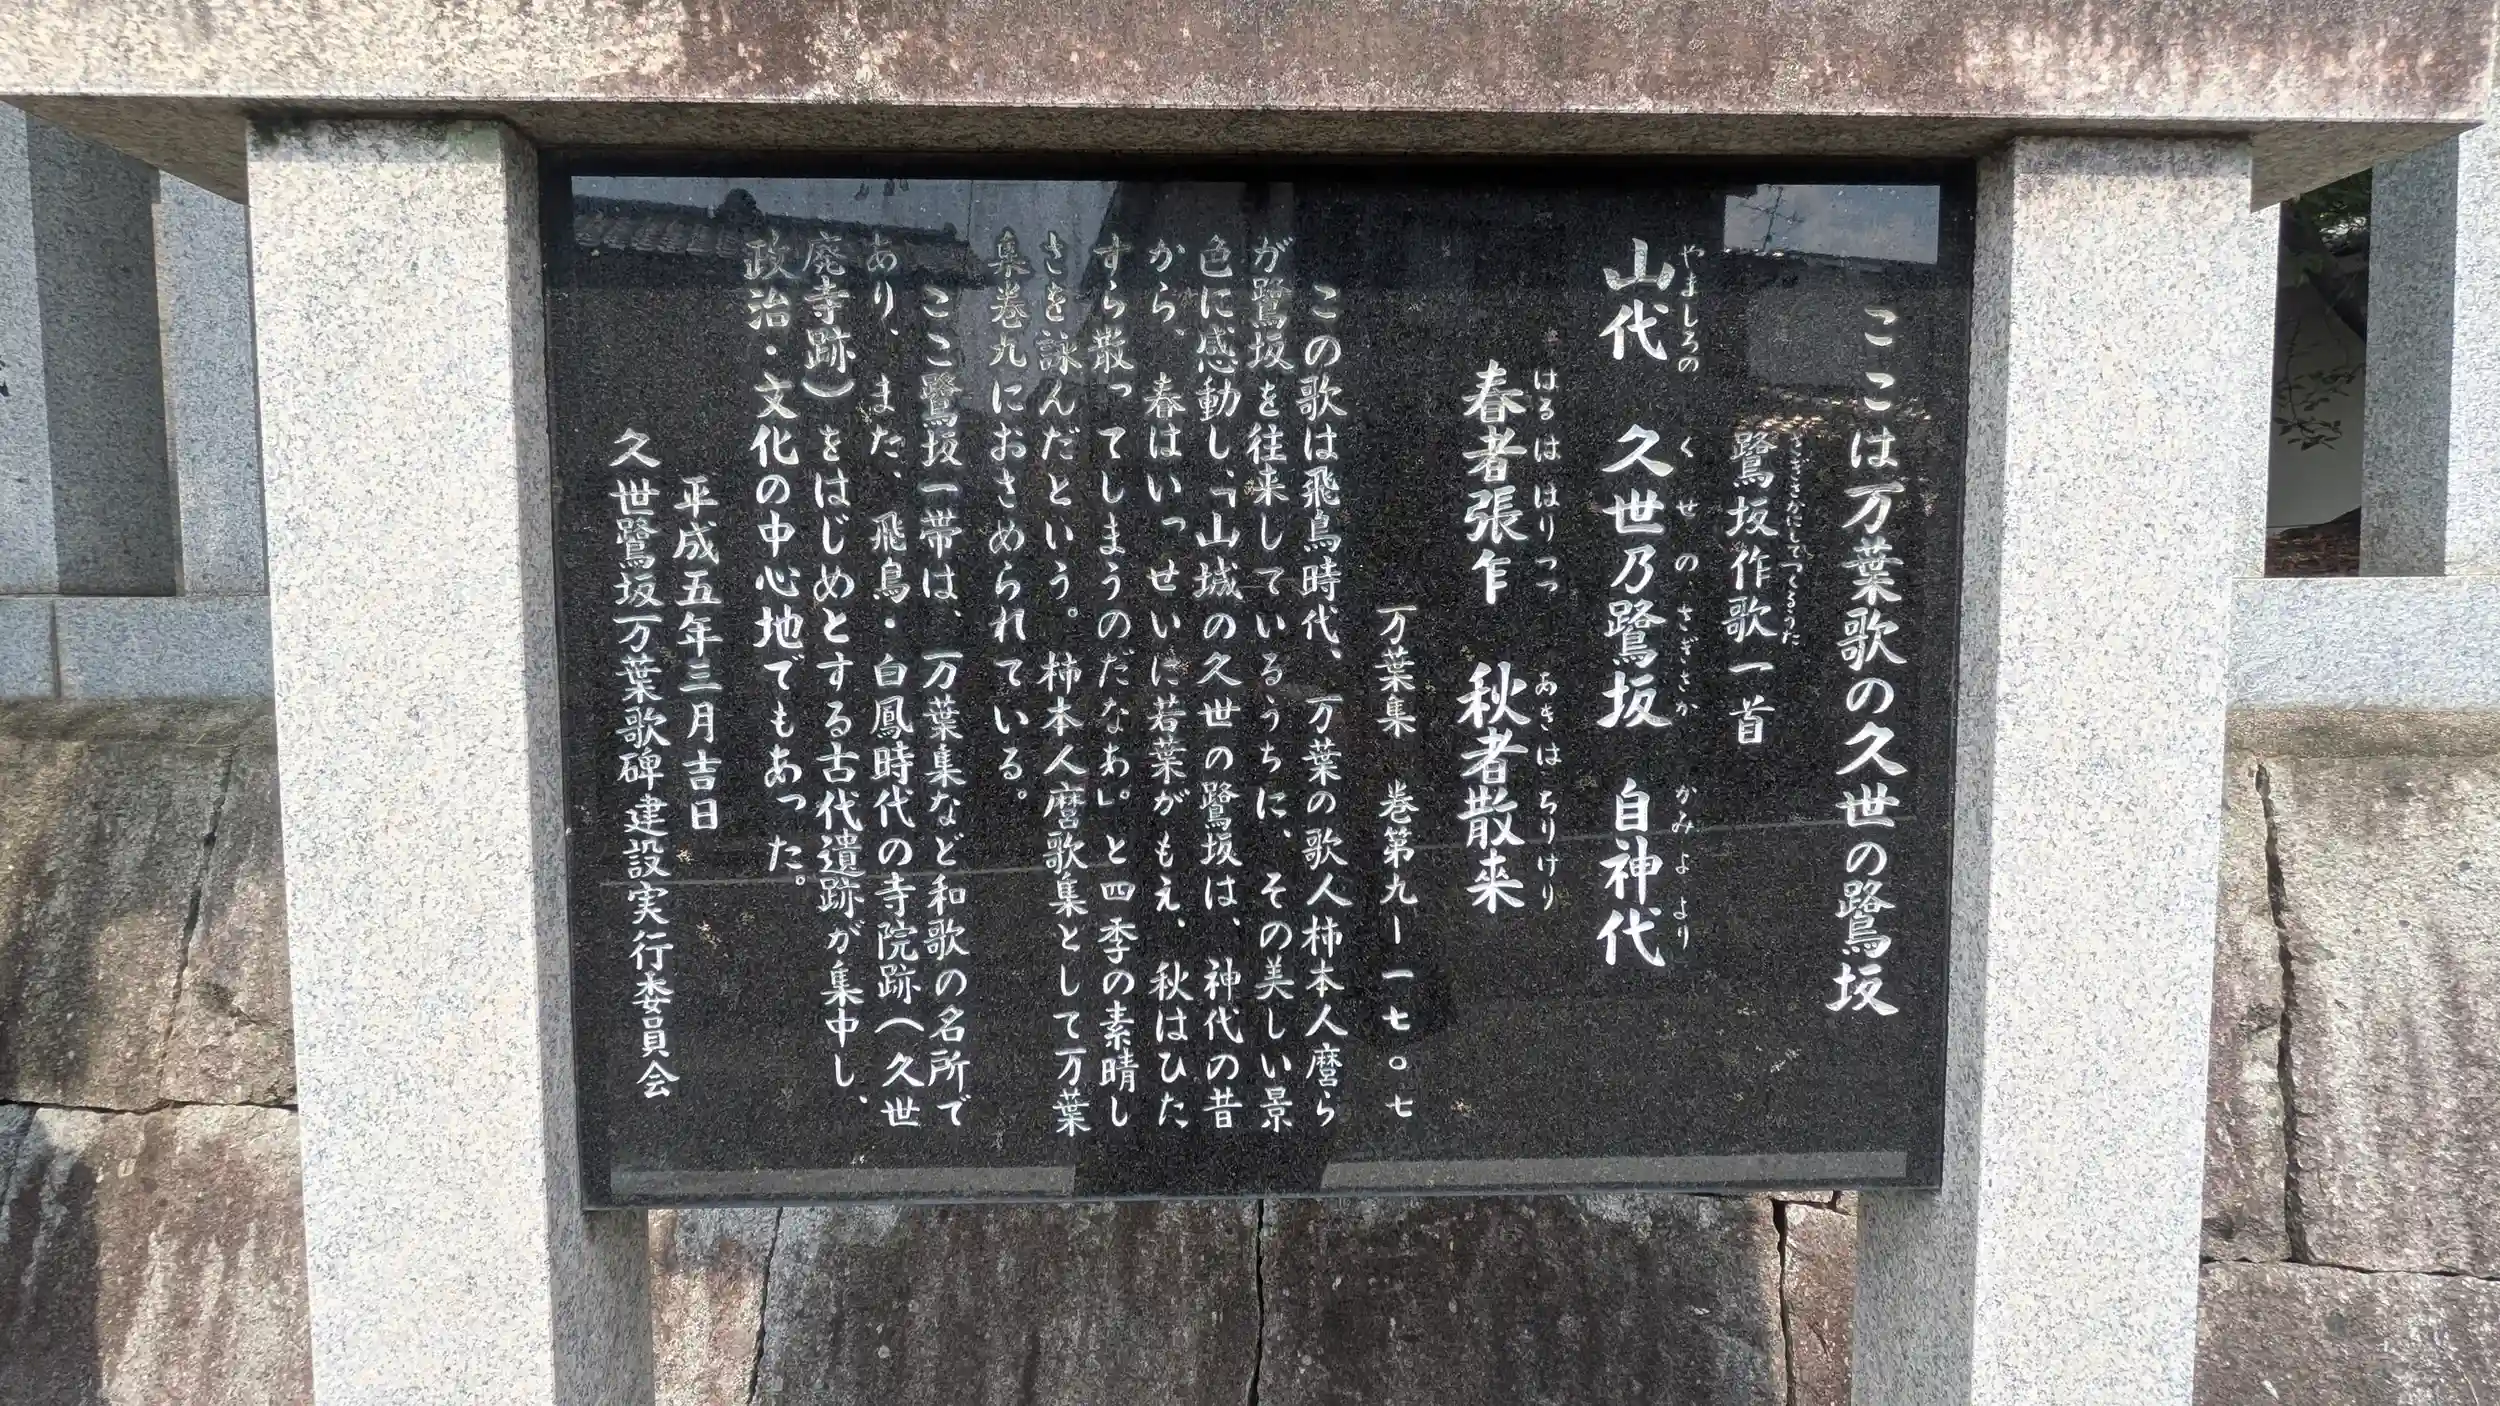 ここは万葉歌の久世の鷺坂
鷺坂作歌一首
さぎさかにしてつくるうた
山代　久世乃鷺坂　自神代
やましろの　くせのさぎさか　かみよより
春者張乍　秋者散来
はるははりつつ　あきはちりけり
万葉集　巻第九ー一七〇七
この歌は飛鳥時代、万葉の歌人柿本人麿ら
が鷺坂を往来しているうちに、その美しい景
色に感動し、「山城の久世の鷺坂は、神代の昔
から、春はいっせいに若葉がもえ、秋はひた
すら散ってしまうのだなあ。」と四季の素晴し
さを詠んだという。柿本人麿歌集として万葉
集巻九におさめられている。
ここ鷺坂一帯は、万葉集など和歌の名所で
あり、また、飛鳥・白鳳時代の寺院跡（久世
廃寺跡）をはじめとする古代遺跡が集中し、
政治・文化の中心地でもあった。
平成五年三月吉日
久世鷺坂万葉歌碑建設実行委員会